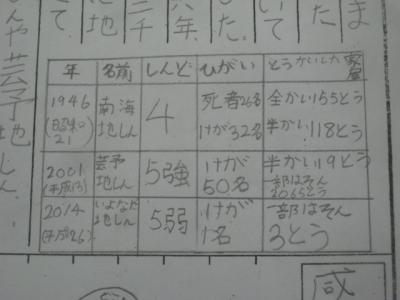 ま
た
いて
した。
六年、
二千
に地
て、
んや芸予地しん
年 名前 しんど ひがい とうかいした家屋
1946
(昭和
21)
南海
地しん
4
死者26名
けが32名
全かい155とう
半かい118とう
2001
(平成13)
芸予
地しん
5強
けが
50名
半かい19とう
一部はそん
2065とう
2014
(平成26)
いよなだ
地しん
5弱
けが
1名
一部はそん
3とう
感